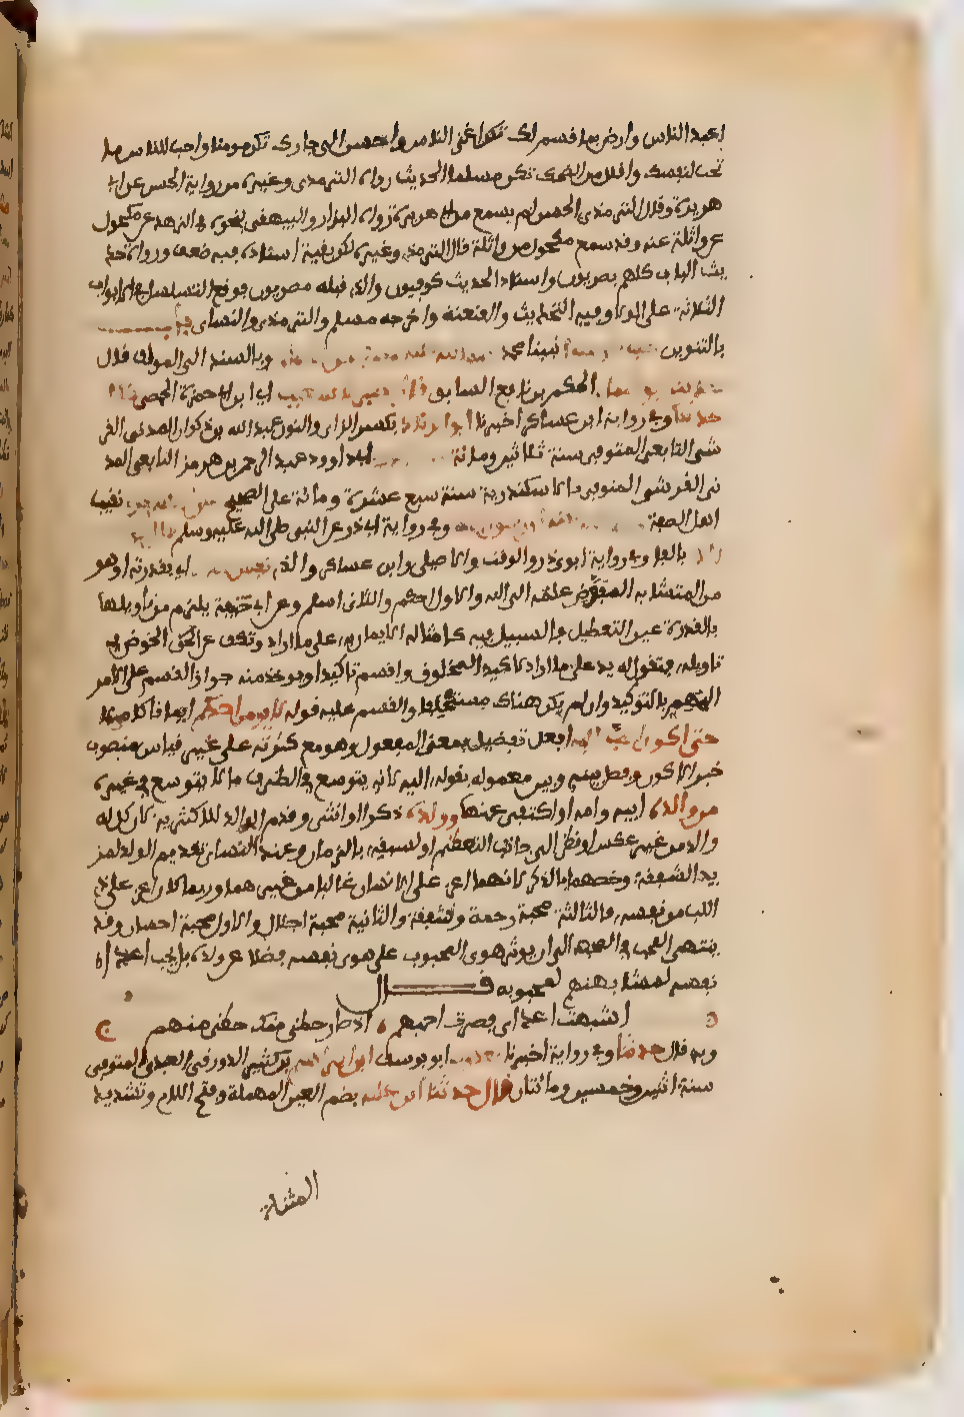 اعبد الناس وارض بما قسم لك تكن اغنى الناس واحسن الى جارك تكن مومنا واحب للناس ما
تحب لنفسك واقلل من الضحك تكن مسلما الحديث رواه الترمذي وغيره من رواية الحسن عن ابي
هريرة وقال الترمذي الحسن لم يسمع من ابي هريرة ورواه البزار والبيهقي بنحوه في الزهد عن مكحول
عن واثلة عنه وقد سمع مكحول من واثلة قال الترمذي وغيره لكن بقية اسناده فيه ضعف ورواة حد
يث الباب كلهم بصريون واسناد الحديث كوفيون والذي قبله مصريون فوقع التسلسل في الابواب
الثلاثة على الولا وفيه التحديث والعنعنة واخرجه مسلم والترمذي والنساي باب
بالتنوين نبينا محمد وبالسند الى المولف قال
الحكم بن نافع السابق قال اي ابن ابي حمزة الحمصي
حدثنا وفي رواية ابن عساكر اخبرنا ابو الزناد بكسر الزاي والنون عبد الله بن ذكوان المدني القر
شي التابعي المتوفى سنة ثلاثين ومائة ابي داوود عبد الرحمن بن هرمز التابعي المد
ني القرشي المتوفى بالاسكندرية سنة سبع عشرة ومائة على الصحيح نقيب
اهل الصفة وفي رواية ابي ذر عن النبي صلى الله عليه وسلم
بالفا وفي رواية ابوي ذر والوقت والاصيلي وابن عساكر والذي نفسي اي بقدرته او هو
من المتشابه المفوض علمه الى الله والاول احكم والثاني اسلم وعن ابي حنيفة يلزم من تاويلها
بالقدرة عين التعطيل فالسبيل فيه كامثاله الايمان به على ما اراد ونكف عن الخوض في
تاويله فنقول له يد على ما اراد لا كيد المخلوق واقسم تاكيدا ويوخذ منه جواز القسم على الامر
المهم بالتوكيد وان لم يكن هناك مستحلف والقسم عليه قوله لا يومن احدكم ايمانا كاملا
حتى اكون احب اليه افعل تفضيل بمعنى المفعول وهو مع كثرته على غير قياس منصوب
خبر الاكون وفصل بينه وبين معموله بقوله اليه لانه يتوسع في الظرف ما لا يتوسع في غيره
من والده ابيه وامه او اكتفى عنها وولده ذكرا او انثى وقدم الوالد للاكثرية لان كل له
والد من غير عكس او نظرا الى جانب التعظيم او لسبقه بالزمان وعند النساي تقديم الولد لمز
يد الشفقة وخصهما بالذكر لانهما اعز على الانسان غالبا من غيرهما وربما كانا اعز على ذي
اللب من نفسه فالثالثة محبة رحمة وشفقة والثانية محبة اجلال والاولى محبة احسان وقد
ينتهي المحب في المحبة الى ان يوثر هوى المحبوب على هوى نفسه فضلا عن ولده بل يحب اعدا
نفسه لمشابهتهم لمحبوبه قال
اشبهت اعدائي فصرت احبهم اذ صار حظي منك حظي منهم
وبه قال حدثنا وفي رواية اخبرنا يعقوب ابو يوسف ابن ابراهيم بن كثير الدورقي العبدي المتوفى
سنة اثنين وخمسين ومائتان قال حدثنا ابن علية بضم العين المهملة وفتح اللام وتشديد
المثناة